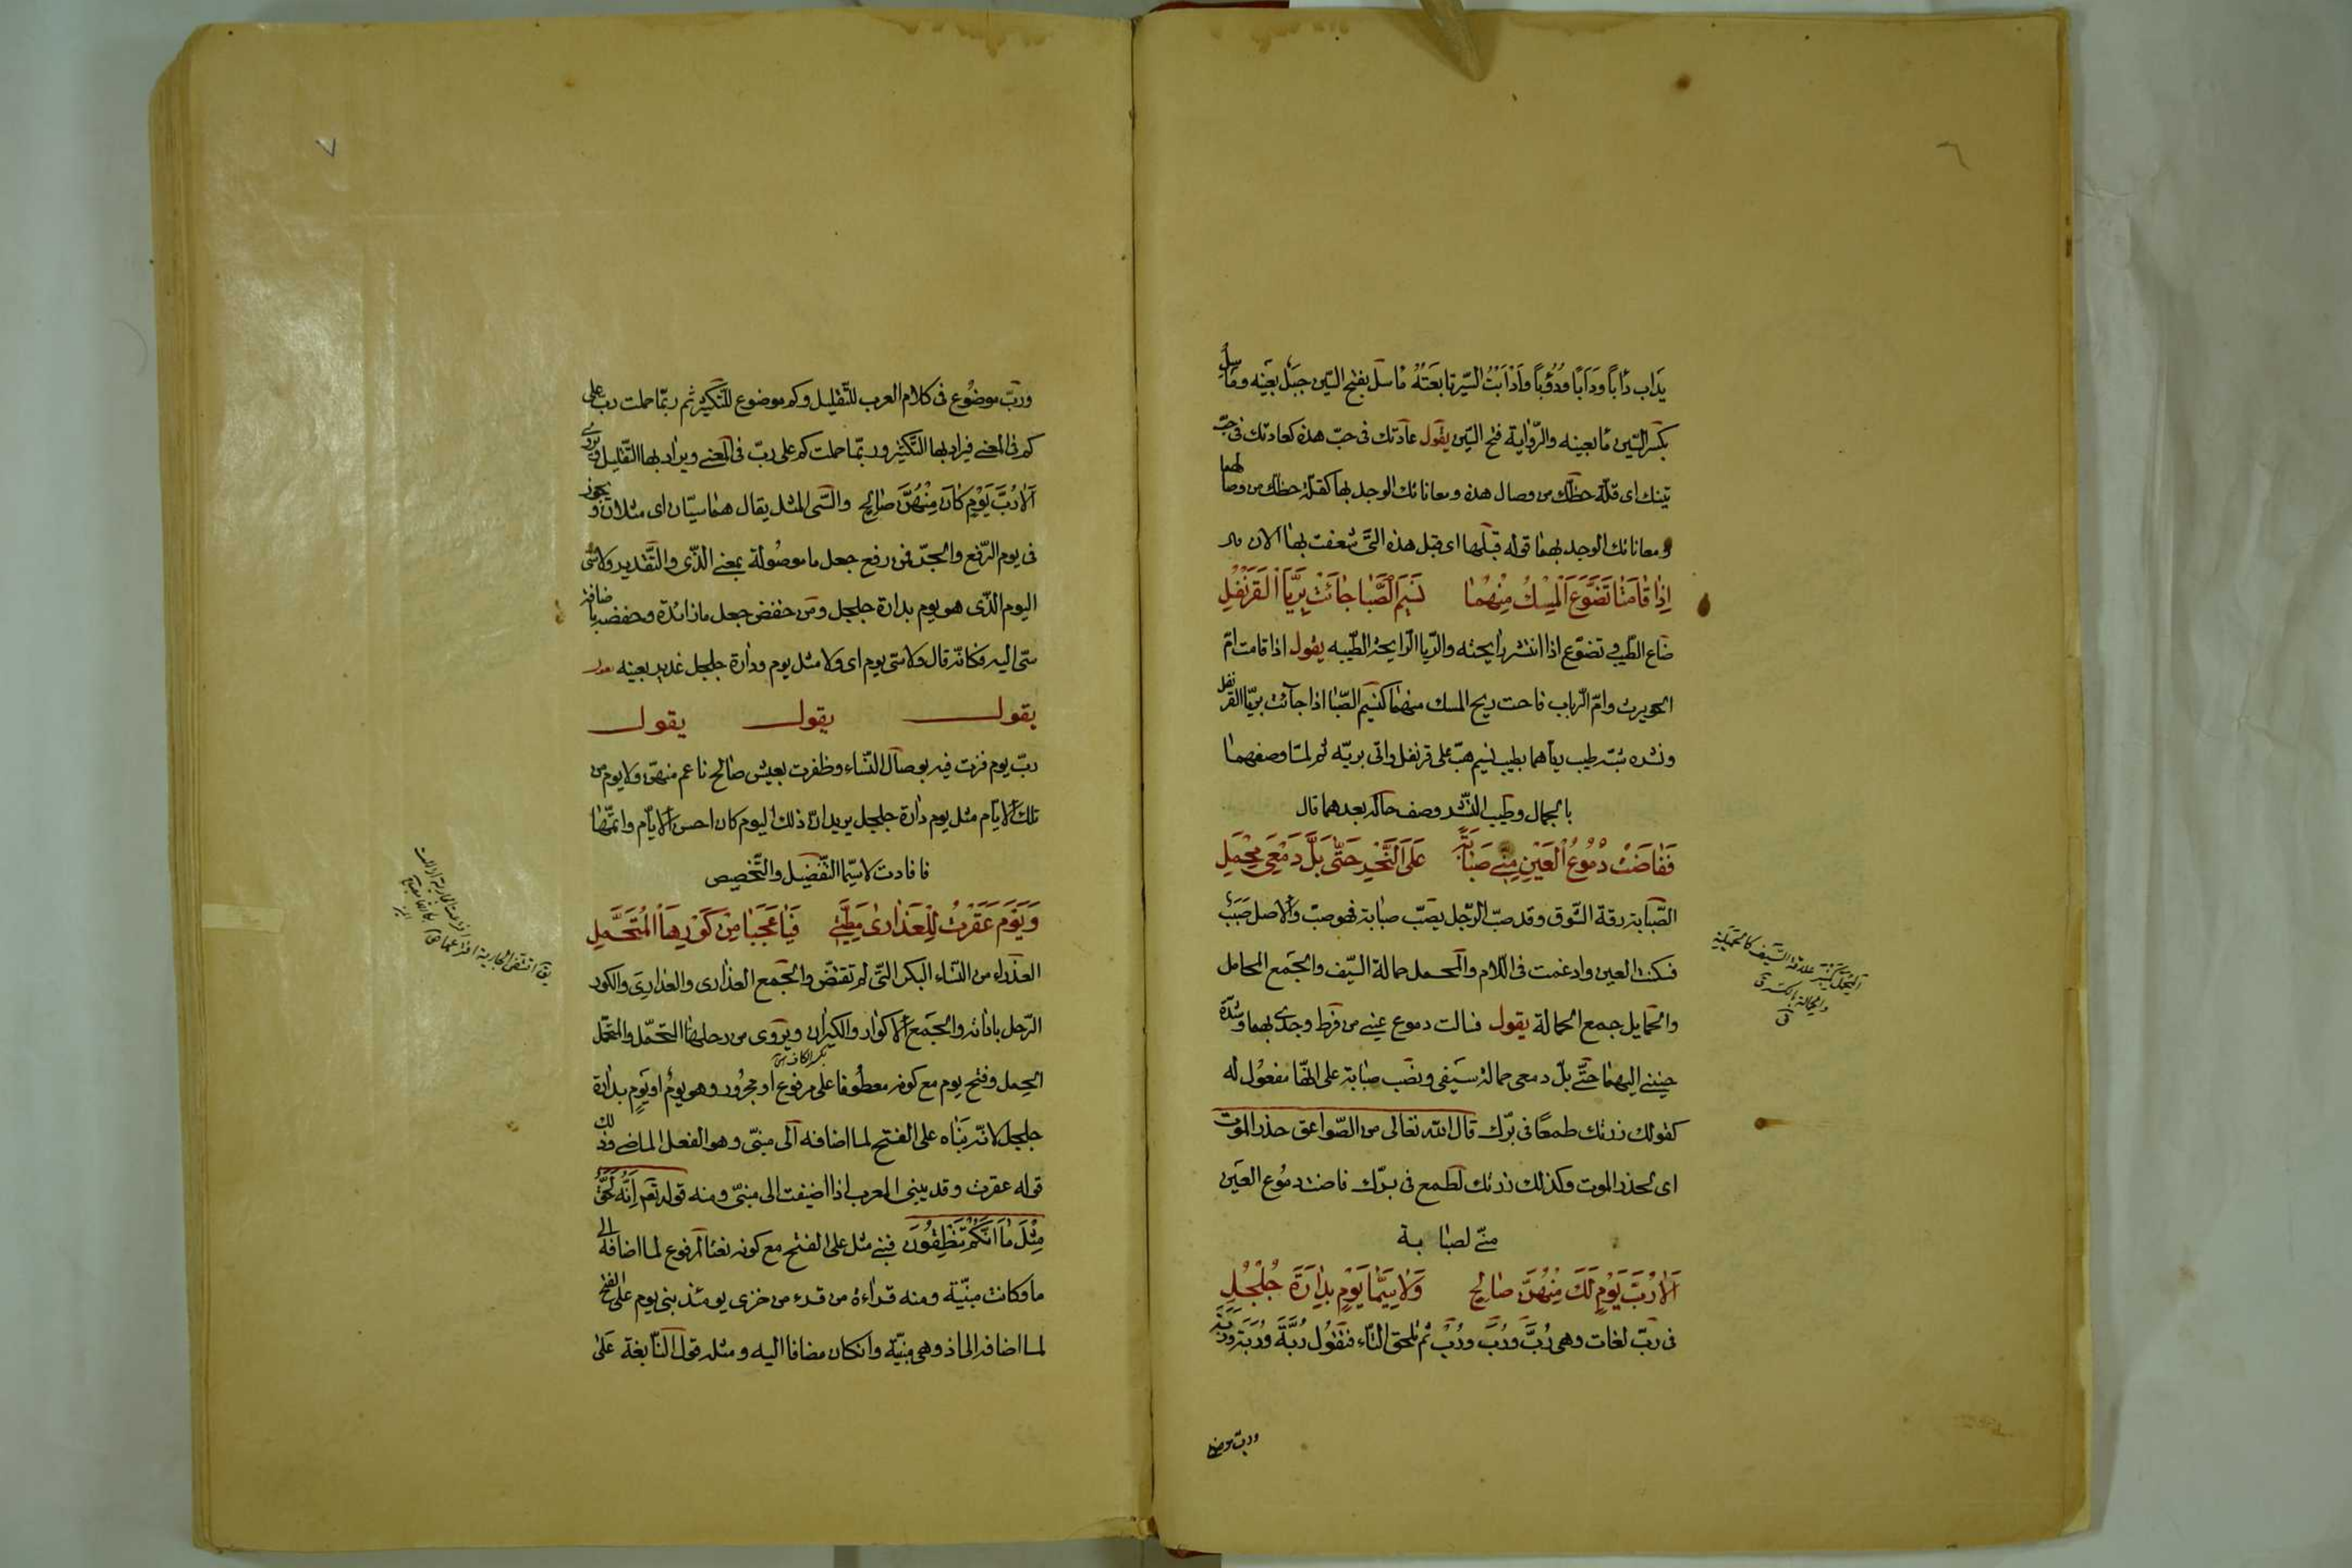 ٦
يَدأب دَأْباً ودَأَباً ودُؤُباً وأَدْأَبْتُ السّير تابعَتُهُ مأسل بفتح السّين جبَل بعَينه ومَأْسِل
بكسر السّين مأ بعينه والرّواية فتح السّين يقول عادتك فى حبّ هذه كعادتك فى حبّ
تينك اى قلّة حظّك من وصال هذه ومعاناتك الوجد بها كقلّة حظّك من وصالهما
ومعاناتك الوجد بهما قوله قبلها اى قبل هذه الّتى شعفت بها الان
اِذٰا قٰامَتٰا تَضَوَّعَ اَلْمِسْكُ مِنْهُمٰا نَسِيَم الصَّبٰا جٰائَتْ بِرَيَّا اْلقَرَنْفُلِ
ضاع الطّيب وتضوّع اذا انتشر رايحته والرّيا الرّايحة الطّيبه يقول اذا قامت امّ
الحويرث وامّ الرّباب فاحت ريح المسك منهما كنسيم الصّبا اذا جآئت بريّا القرنفل
ونشره شبّه طيب رياهما بطيب نسيم هبّ على قرنفل واتى بريّه ثم لمّا وصفهمٰا
بالجمال وطيب النّشر وصف حاله بعدهما قال
فَفٰاضَتْ دُمُوعُ الْعَيْنِ مِنّى صَبٰابَةً عَلَى النَّحْرِ حَتّٰى بَلَّ دَمْعِىَ مِحْمَلِى
الصّبابة رقة الشّوق وقد صبّ الرّجل يصبّ صبابة فهو صبّ والاصل صَبَبٌ
فسكنت العين وادغمت فى اللام والمحمل حمالة السّيف والجمع المحامل
والحمايل جمع الحمالة يقول فسالت دموع عينى من فرط وجدى بهما وشدّة
حنينى اليهما حتّى بلّ دمعى حمالة سيفى ونصب صبابة على انّها مفعول له
كقولك زرتك طمعًا فى برّك قال الله تعالى من الصّواعق حذر الموت
اى لحذر الموت وكذلك زرتك لطمع فى برّك فاضت دموع العين
منّى لصبابة
اَلاٰ رُبَّ يَوْمٍ لَكَ مِنْهُنَّ صٰالِحٍ وَلاٰسِيَّمٰا يَوْمٍ بِدٰارَةِ جُلْجُلِ
فى ربّ لغات وهى رُبَّ ورُبَ ورُبْ ثم تلحق التّاء فتقول رُبَّةَ ورُبَتَ
وربّ موضوع
المحمل علاقة السّيف
٧
وربّ موضوع فى كلام العرب للتّقليل وكم موضوع للتّكثير ثم ربّما حملت رب على
كم فى المعنى فيراد بها التّكثير وربّما حملت كم على ربّ فى المعنى ويراد بها التّقليل ويروى
اَلاٰ رُبَّ يَوْمٍ كٰانَ مِنْهُنَّ صٰالِحٍ والسّى المثل يقال هما سيّان اى مثلان ويجوز
فى يوم الرّفع والجرّ فمن رفع جعل ما موصولة بمعنى الّذى والتّقدير ولا سّى
اليوم الّذى هو يوم بدارة جلجل ومن خفض جعل ما زائدة وخفضه باضافة
سّى اليه فكانّه قال ولا سّى يوم اى ولا مثل يوم ودارة جلجل غدير بعينه يقول
يقول يقول يقول
ربّ يوم فزت فيه بوصال النّساء وظفرت بعيش صالح ناعم منهنّ ولا يوم من
تلك الايّام مثل يوم دارة جلجل يريد انّ ذلك اليوم كان احسن الايّام واتمّها
فافادت لاسيّما التّفضيل والتّخصيص
وَيَوْمَ عَقَرْتُ لِلْعَذٰارىٰ مَطِيَّتِى فَيٰا عَجَبٰا مِنْ كَوْرِهَا الْمُتَحَمَّلِ
العذراء من النّساء البكر الّتى لم تقتضّ والجمع العذارى والعذارِى والكور
الرّحل باداته والجمع الاكوار والكيران ويروى من رحلها المتحمّل والمتحمّل
بكسر الكاف
الحمل وفتح يوم مع كونه معطوفا على مرفوع او مجرور وهو يومٌ او يَومٍ بدارة
جلجل لانّه بناه على الفتح لما اضافه الى مبنىّ وهو الفعل الماضى وذلك
قوله عقرت وقد يبنى المعرب اذا اضيفت الى مبنىّ ومنه قوله تعم اِنَّهُ لَحَقٌّ
مِثْلَ مٰا اَنَّكُمْ تَنْطِقُونَ فبنى مثل على الفتح مع كونه نعتا لمرفوع لما اضافه الى
ما وكانت مبنيّة ومنه قراءة من قرء من خزى يومئذ بنى يوم على الفتح
لما اضافه الى اذ وهى مبنيّة وان كان مضافا اليه ومثله قول النّابغة عَلىٰ
يق اقتضّ الجارية افترعها ق